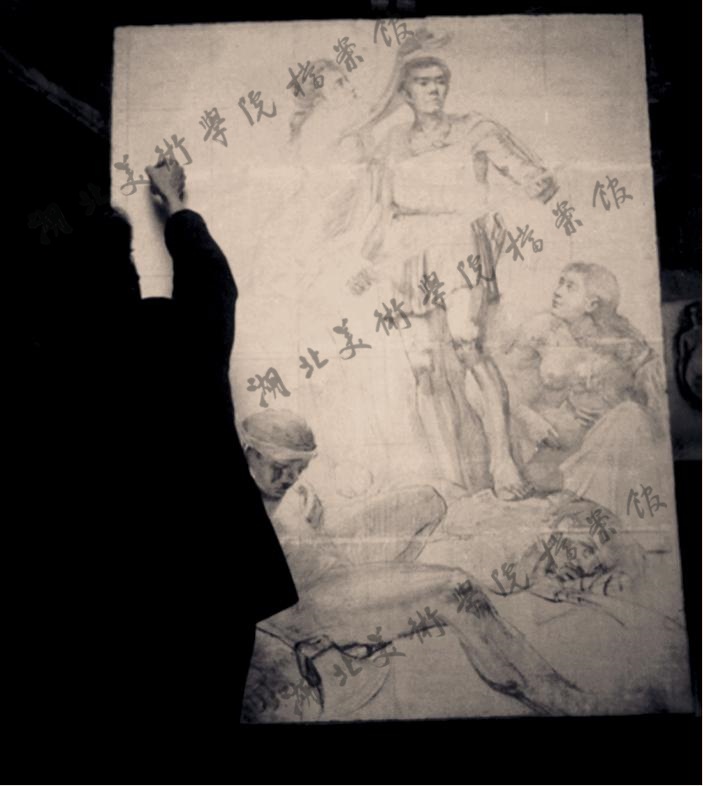 湖北美術學院檔案馆
湖北美術學院檔案馆
湖北美術學院檔案馆